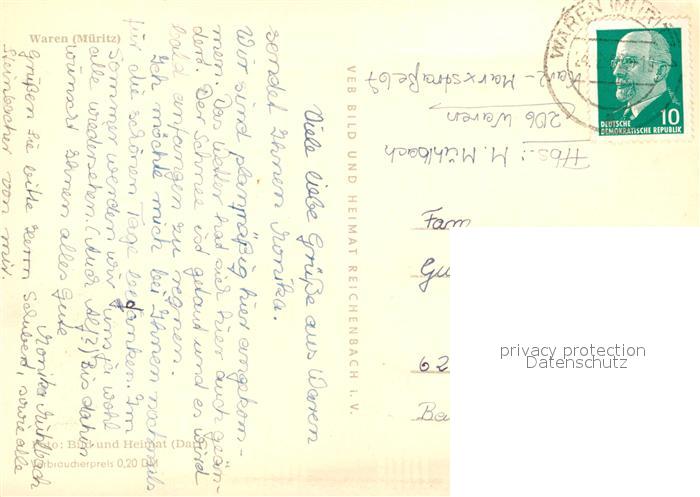 Waren (Müritz)
Viele liebe Grüße aus Waren
sendet Ihnen Monika.
Wir sind planmäßig hier angekom-
men. Das Wetter hat sich hier auch geän-
dert. Der Schnee ist getaut und es wird
bald anfangen zu regnen.
Ich möchte mich bei Ihnen nochmals
für die schönen Tage bedanken. Im
Sommer werden wir uns ja wohl
alle wiedersehen. (Auch Alf?) Bis dahin
wünscht Ihnen alles Gute
Monika Mühlbach
Grüßen Sie bitte Herrn Schubert, sowie alle
Steinbacher von mir.
Foto: Bild und Heimat
Verbraucherpreis 0,20 DM
VEB BILD UND HEIMAT REICHENBACH i. V.
WAREN (MÜRITZ)
DEUTSCHE
DEMOKRATISCHE REPUBLIK
10
Abs.: M. Mühlbach
206 Waren
Karl-Marxstraße 67
Fam
Gu
62
Ba
privacy protection
Datenschutz